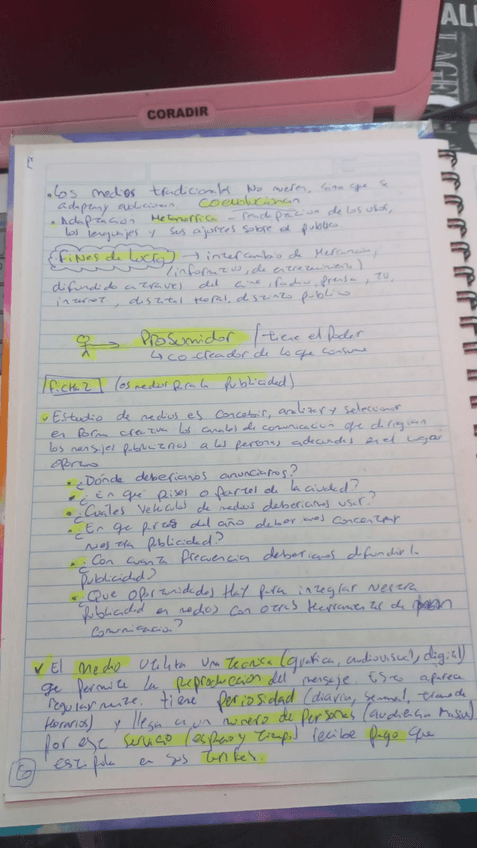 ALI
LAGE
CORADIR
• Los medios tradicionales No mueren, sino que se
adaptan y evolucionan COEVOLUCIONAN
• Adaptacion Metamorfica - readaptacion de los usos,
los lenguajes y sus ajustes sobre el publico
Fines de lucro → intercambio de Mercancia,
(informativo, de entretenimiento)
difundido a traves del cine, radio, prensa, TV,
internet, distinto publico
Prosumidor / tiene el Poder
↳ co-creador de lo que consume
Ficha 2 (los medios para la Publicidad)
Estudio de medios es concebir, analizar y seleccionar
en forma creativa los canales de comunicación que dirigen
los mensajes publicitarios a las personas adecuadas en el lugar
oportuno
• ¿Donde deberiamos anunciarnos?
• ¿En que paises o partes de la ciudad?
• ¿Cuales vehiculos de medios deberiamos usar?
• ¿En que del año deberiamos concentrar
nuestra publicidad?
• ¿Con cuanta frecuencia deberiamos difundir la
publicidad?
• ¿Que oportunidades Hay para integrar nuestra
publicidad en medios con otras Herramientas de
comunicacion?
El Medio utiliza una tecnica (grafica, audiovisual, digital)
que permite la Reproduccion del mensaje. Esto aparece
regularmente. tiene periosidad (diaria, semanal,
Horarios) y llega a un número de personas (audiencia Masiva)
por ese servicio (espacio y tiempo) recibe pago que
estipula en sus tarifas.